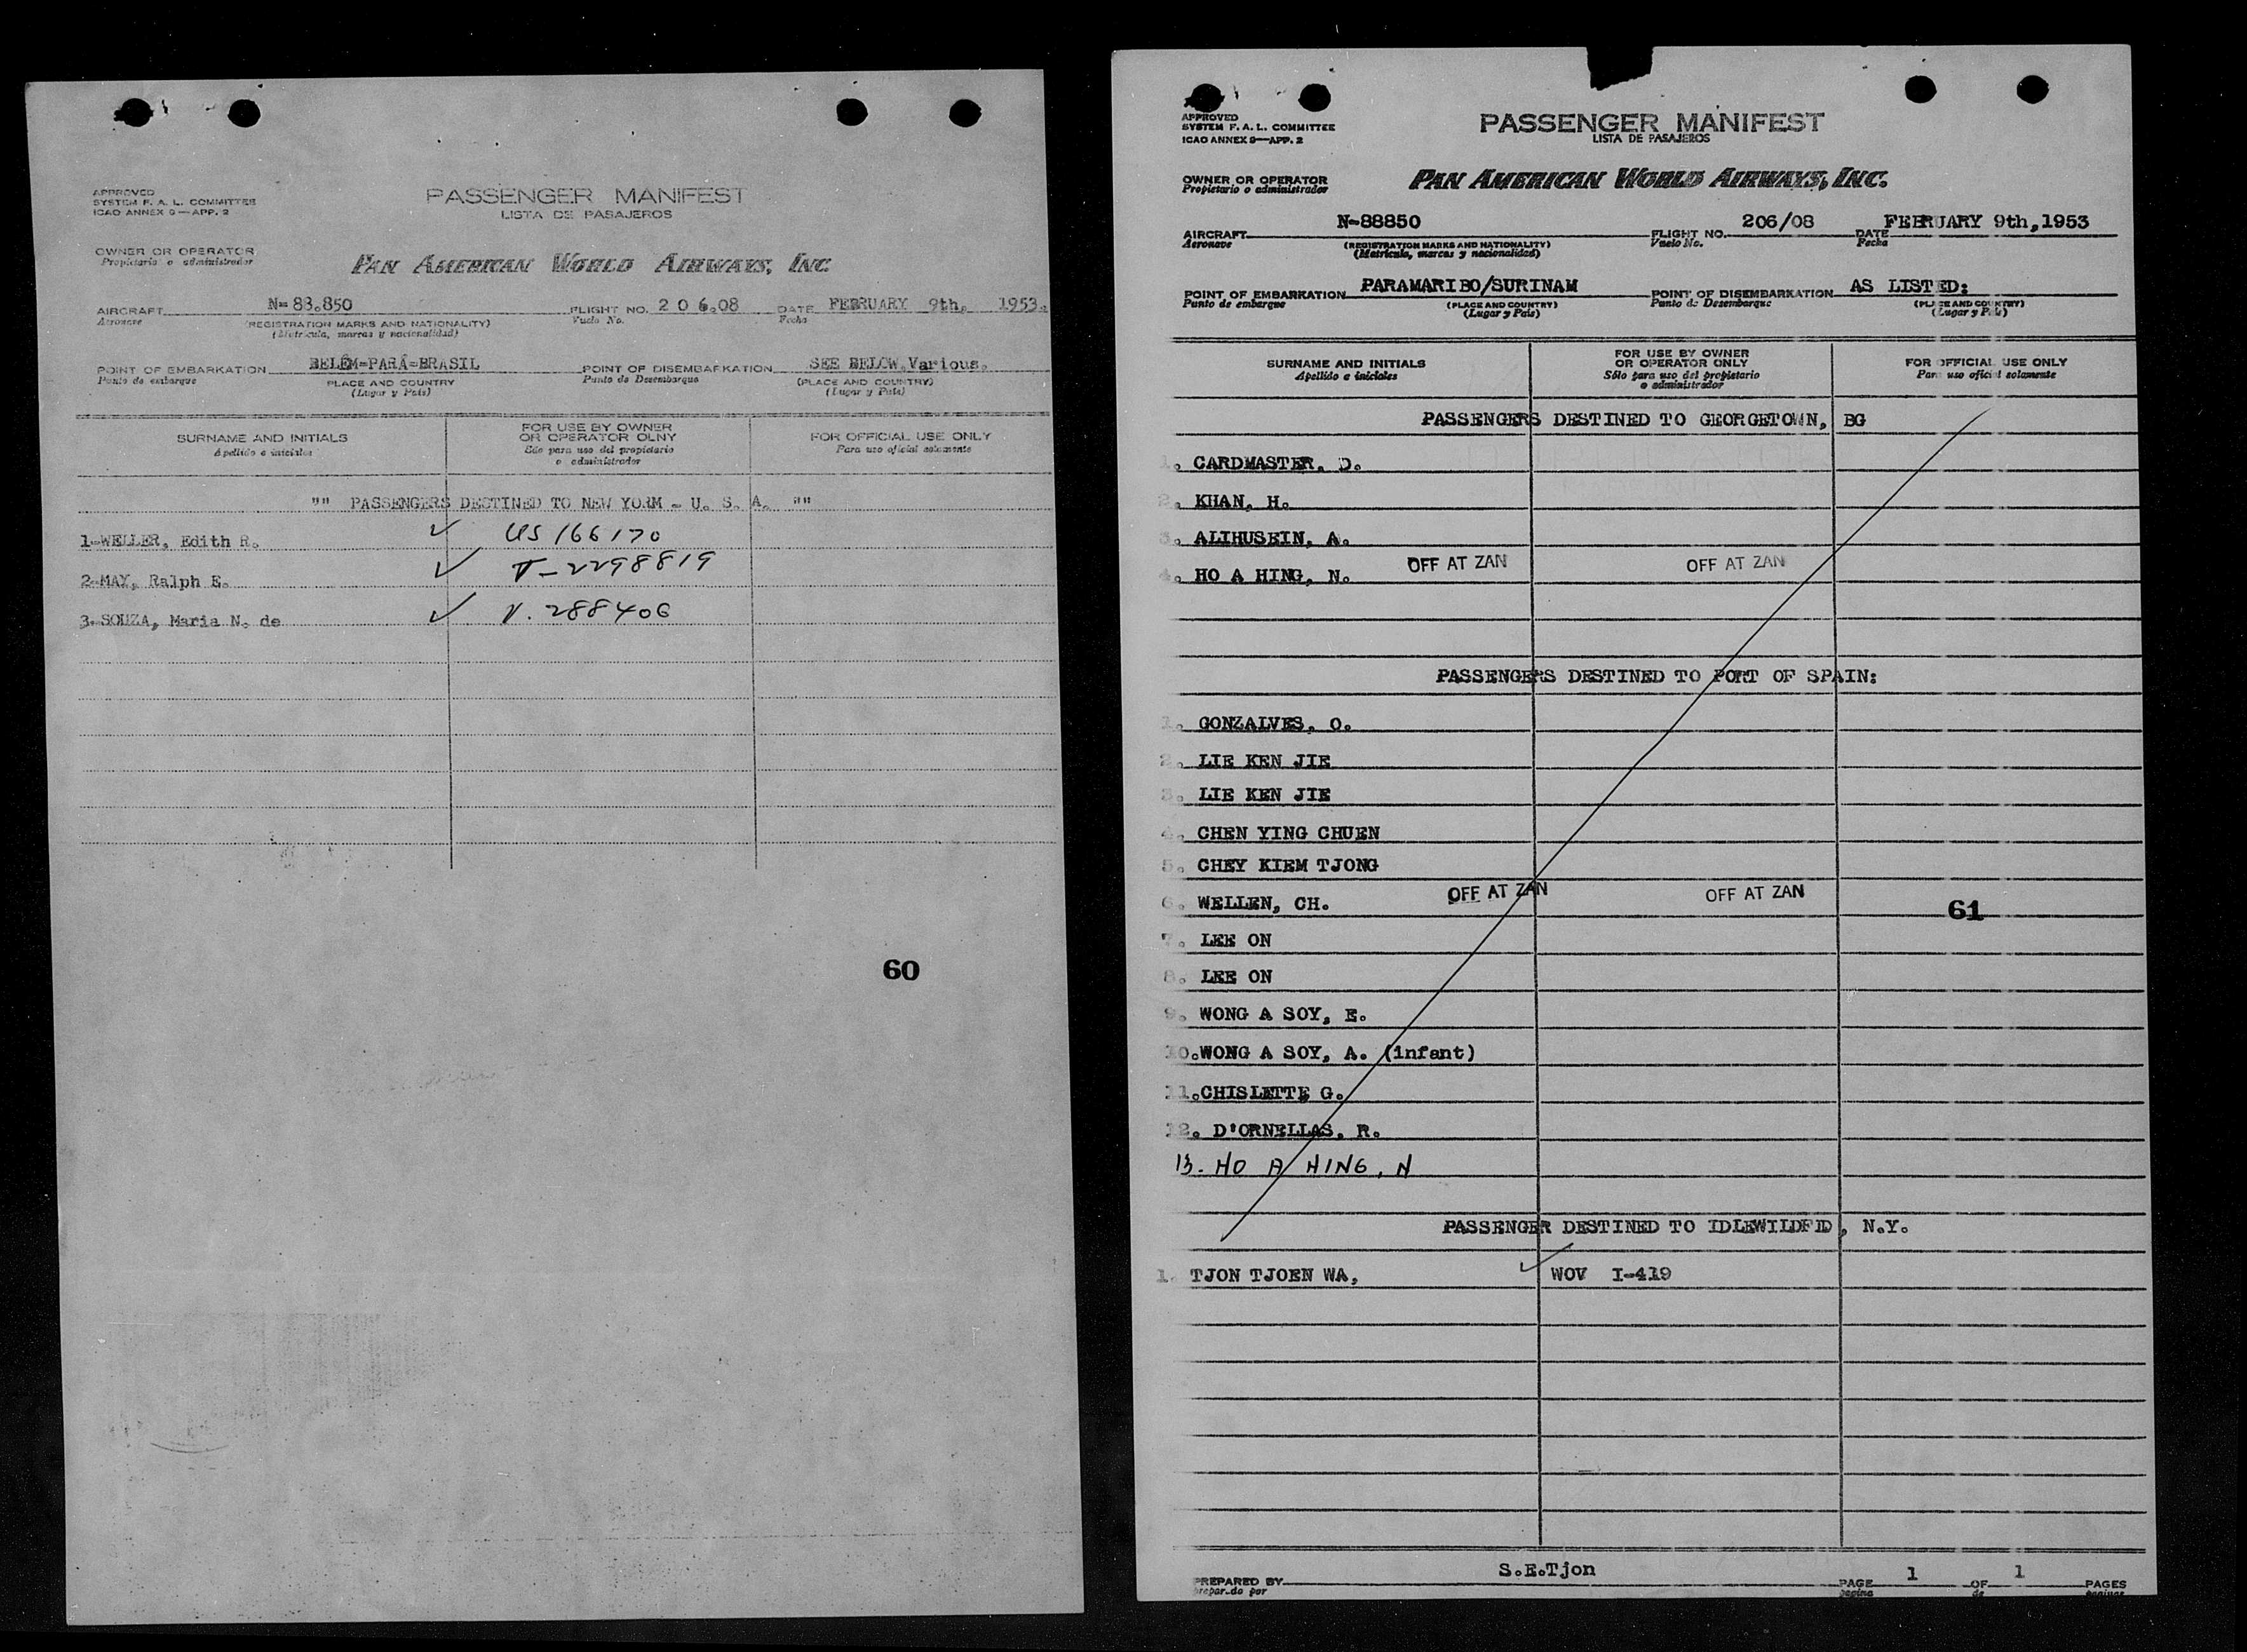 APPROVED
SYSTEM F. A. L. COMMITTEE
ICAO ANNEX 9—APP. 2
PASSENGER MANIFEST
LISTA DE PASAJEROS
OWNER OR OPERATOR
Propietario o administrador
PAN AMERICAN WORLD AIRWAYS, INC.
AIRCRAFT N-88.850 FLIGHT NO. 2 0 6.08 DATE FEBRUARY 9th, 1953.
Aeronave (REGISTRATION MARKS AND NATIONALITY) Vuelo No. Fecha
(Matrícula, marcas y nacionalidad)
POINT OF EMBARKATION BELÉM-PARÁ-BRASIL POINT OF DISEMBARKATION SEE BELOW.Various.
Punto de embarque PLACE AND COUNTRY Punto de Desembarque (PLACE AND COUNTRY)
(Lugar y País) (Lugar y País)
SURNAME AND INITIALS
Apellido e iniciales
FOR USE BY OWNER
OR OPERATOR OLNY
Sólo para uso del propietario
o administrador
FOR OFFICIAL USE ONLY
Para uso oficial solamente
"" PASSENGERS DESTINED TO NEW YORM - U. S. A. ""
1-WELLER, Edith R. ✓ US 166170
2-MAY, Ralph E. ✓ V-2298819
3-SOUZA, Maria N. de ✓ V. 288406
60
APPROVED
SYSTEM F. A. L. COMMITTEE
ICAO ANNEX 9—APP. 2
PASSENGER MANIFEST
LISTA DE PASAJEROS
OWNER OR OPERATOR
Propietario o administrador
PAN AMERICAN WORLD AIRWAYS, INC.
AIRCRAFT N-88850 FLIGHT NO. 206/08 DATE FEBRUARY 9th,1953
Aeronave (REGISTRATION MARKS AND NATIONALITY) Vuelo No. Fecha
(Matrícula, marcas y nacionalidad)
POINT OF EMBARKATION PARAMARIBO/SURINAM POINT OF DISEMBARKATION AS LISTED:
Punto de embarque (PLACE AND COUNTRY) Punto de Desembarque (PLACE AND COUNTRY)
(Lugar y País) (Lugar y País)
SURNAME AND INITIALS
Apellido e iniciales
FOR USE BY OWNER
OR OPERATOR ONLY
Sólo para uso del propietario
o administrador
FOR OFFICIAL USE ONLY
Para uso oficial solamente
PASSENGERS DESTINED TO GEORGETOWN, BG
1. CARDMASTER, D.
2. KHAN, H.
3. ALIHUSEIN, A.
4. HO A HING, N. OFF AT ZAN OFF AT ZAN
PASSENGERS DESTINED TO PORT OF SPAIN:
1. GONZALVES, O.
2. LIE KEN JIE
3. LIE KEN JIE
4. CHEN YING CHUEN
5. CHEY KIEM TJONG
6. WELLEN, CH. OFF AT ZAN OFF AT ZAN
61
7. LEE ON
8. LEE ON
9. WONG A SOY, E.
10.WONG A SOY, A. (infant)
11.CHISLETTE G.
12. D'ORNELLAS, R.
13. HO A HING, N
PASSENGER DESTINED TO IDLEWILDFID, N.Y.
1. TJON TJOEN WA, ✓ WOV I-419
PREPARED BY S.E.Tjon PAGE 1 OF 1 PAGES
preparado por pagina de paginas